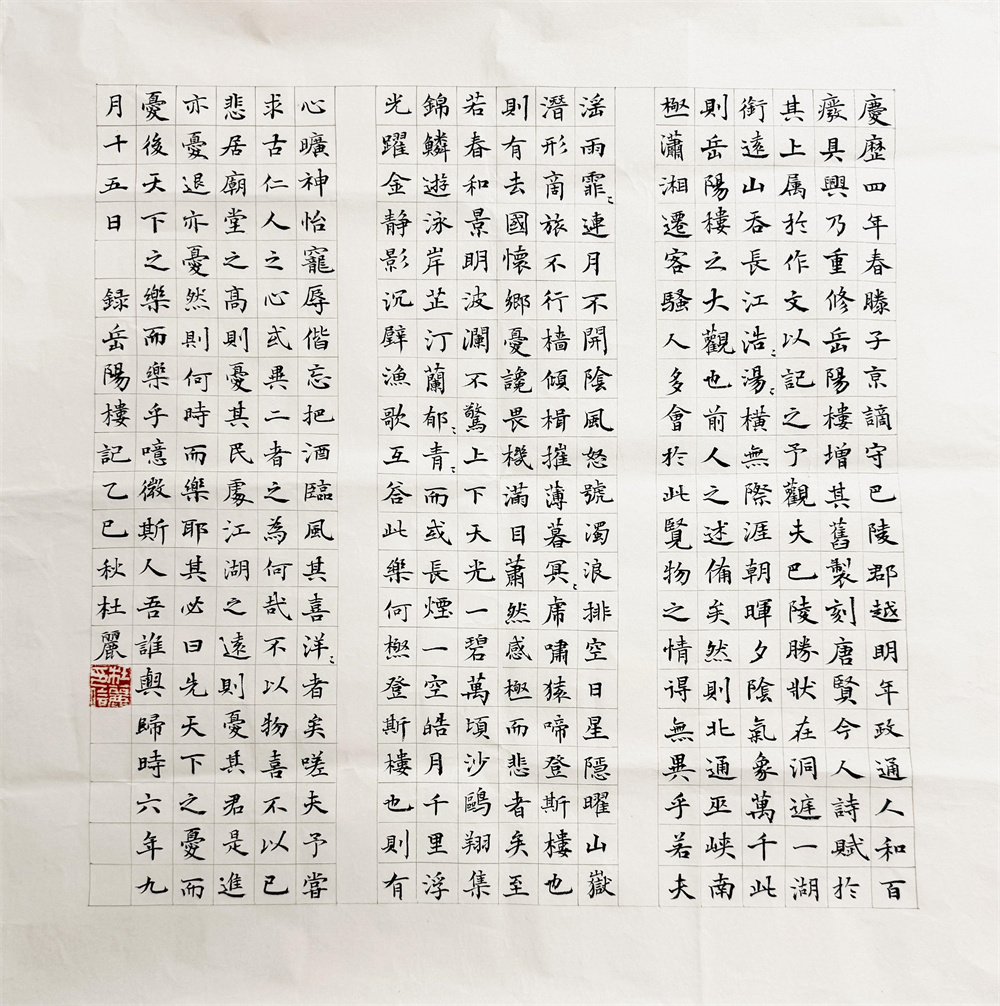 慶歷四年春滕子京謫守巴陵郡越明年政通人和百
廢具興乃重修岳陽樓增其舊製刻唐賢今人詩賦於
其上属於作文以記之予觀夫巴陵勝狀在洞庭一湖
銜遠山吞長江浩〻湯〻橫無際涯朝暉夕陰氣象萬千此
則岳陽樓之大觀也前人之述俻矣然則北通巫峽南
極瀟湘遷客騷人多會於此覽物之情得無異乎若夫
淫雨霏〻連月不開陰風怒號濁浪排空日星隱曜山嶽
潛形商旅不行檣傾楫摧薄暮冥〻虎嘯猿啼登斯樓也
則有去國懷鄉憂讒畏機滿目蕭然感極而悲者矣至
若春和景明波瀾不驚上下天光一碧萬頃沙鷗翔集
錦鱗遊泳岸芷汀蘭郁〻青〻而或長煙一空皓月千里浮
光躍金靜影沉璧漁歌互答此樂何極登斯樓也則有
心曠神怡寵辱偕忘把酒臨風其喜洋〻者矣嗟夫予嘗
求古仁人之心或異二者之為何哉不以物喜不以己
悲居廟堂之高則憂其民處江湖之遠則憂其君是進
亦憂退亦憂然則何時而樂耶其必曰先天下之憂而
憂後天下之樂而樂乎噫微斯人吾誰與歸時六年九
月十五日 録岳陽樓記乙巳秋杜麗